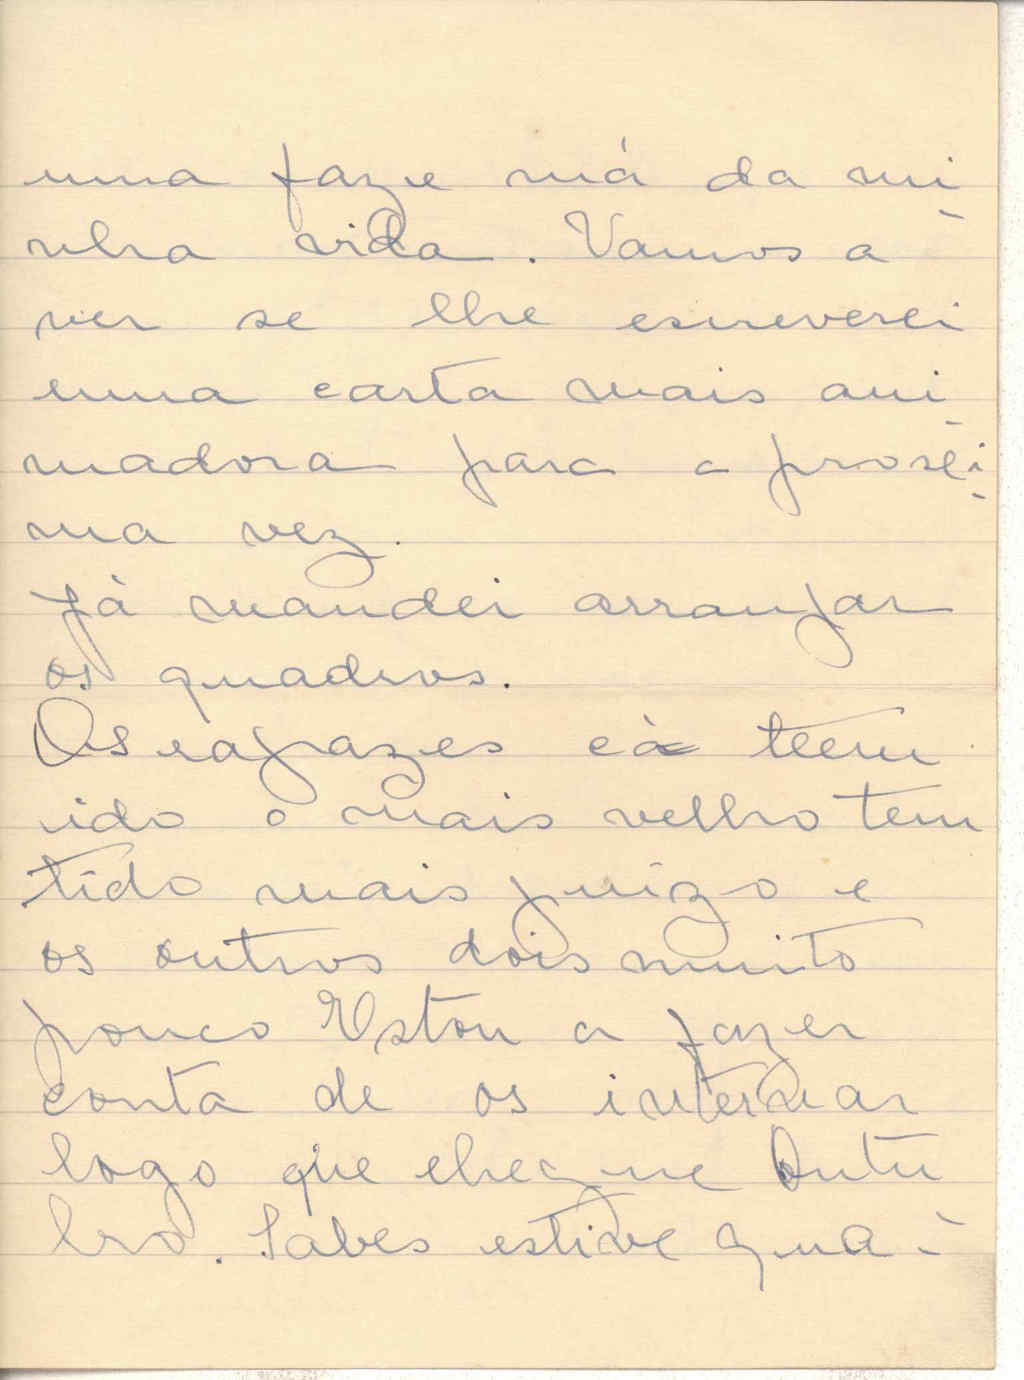 uma faze má da mi-
nha vida. Vamos a
ver se lhe escreverei
uma carta mais ani-
madora para a prosei-
ma vez.
Já mandei arranjar
os quadros.
Os rapazes cá teem
ido o mais velho tem
tido mais juízo e
os outros dois muito
pouco Estou a fazer
conta de os internar
logo que chegue Outu
bro. Sabes estive qua-